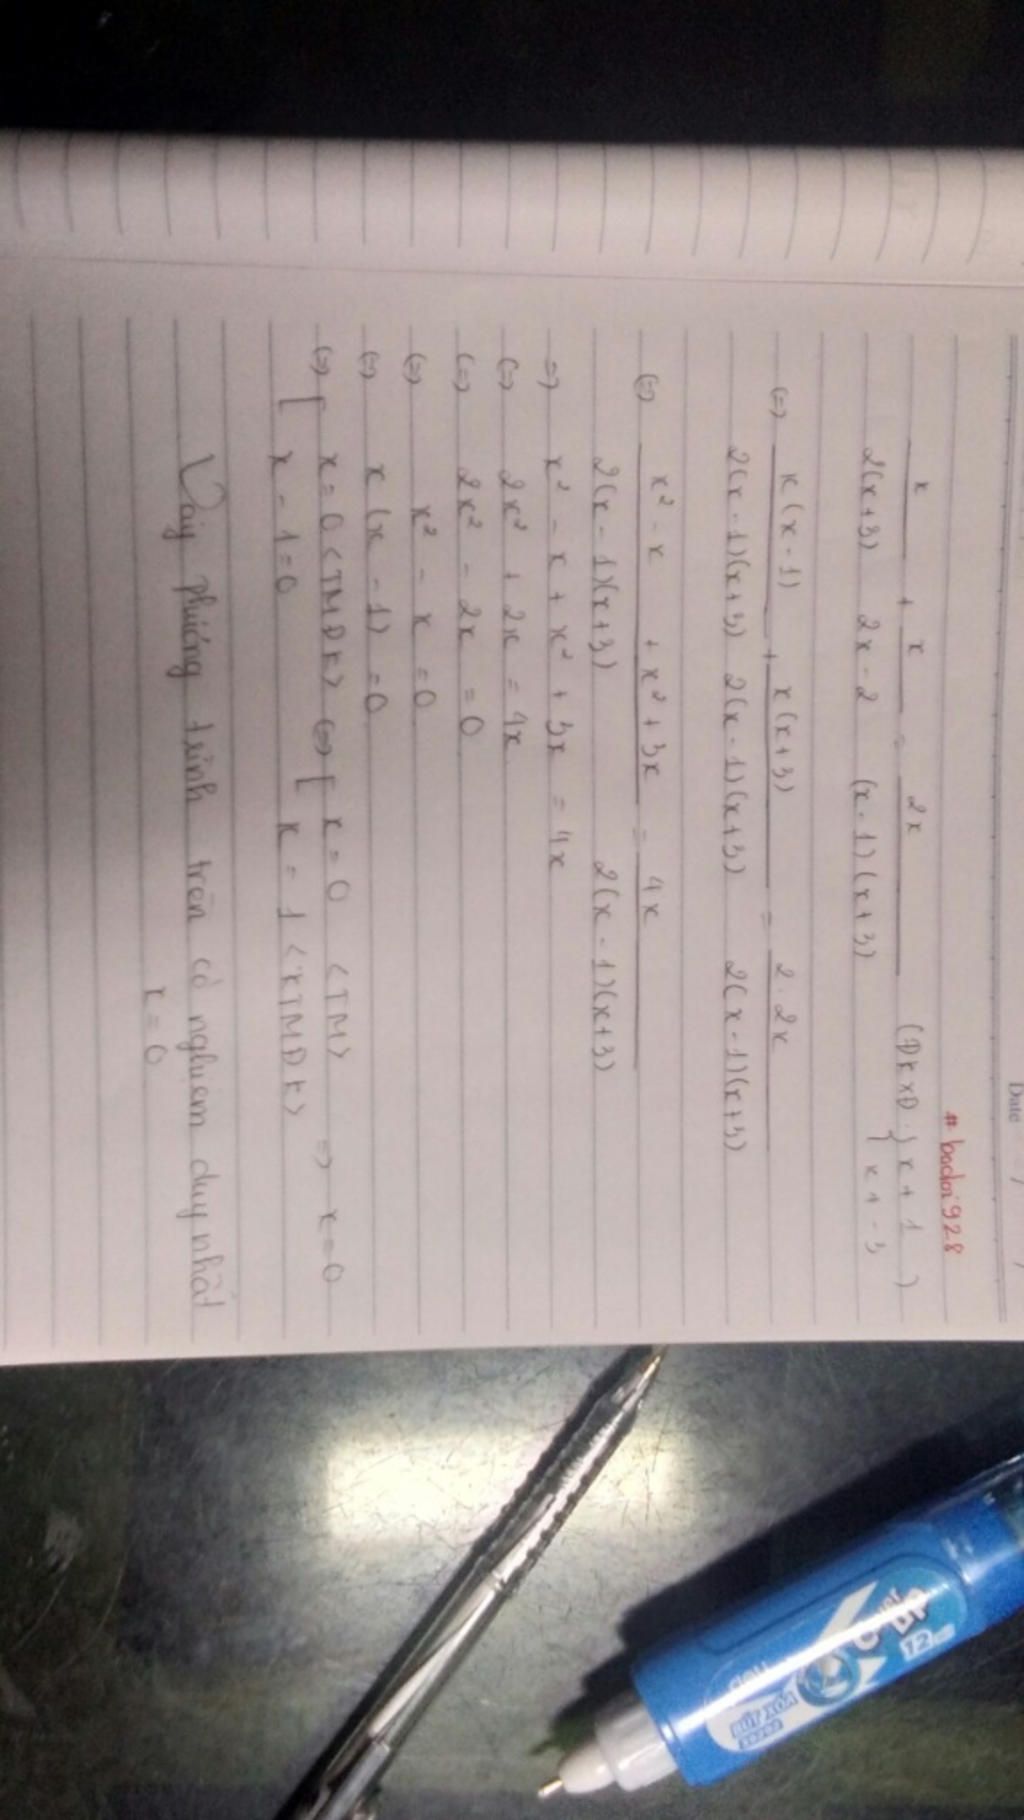 Date
# badoi928
x/2(x+3) + x/2x-2 = 2x/(x-1)(x+3) (ĐKXĐ: { x ≠ 1 ; x ≠ -3 )
(=) x(x-1)/2(x-1)(x+3) + x(x+3)/2(x-1)(x+3) = 2.2x/2(x-1)(x+3)
(=) x² - x + x² + 3x/2(x-1)(x+3) = 4x/2(x-1)(x+3)
=) x² - x + x² + 3x = 4x
(=) 2x² + 2x = 4x
(=) 2x² - 2x = 0
(=) x² - x = 0
(=) x(x-1) = 0
(=) [ x = 0 <TMĐK> (=) [ x = 0 <TM> =) x = 0
x - 1 = 0 x = 1 <KTMĐK>
Vậy phương trình trên có nghiệm duy nhất
x = 0
BÚT XÓA
12